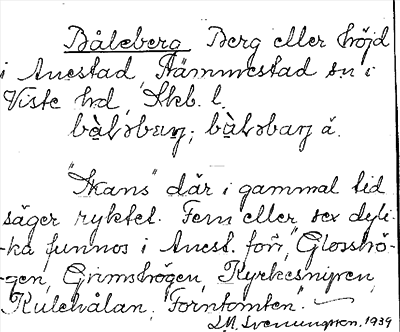 Båleberg Berg eller höjd
i Anestad, Hämmestad sn i
Viste hd, Skb. l.
bàləbærj; bàləbarj å.
"Skans" där i gammal tid
säger ryktet. Fem eller sex dyli-
ka funnos i Anest. förr, "Glosshö-
gen, Grimshögen, Kyrkesmyren,
Kulehålan, "Forntomten."
Svenungson, 1939